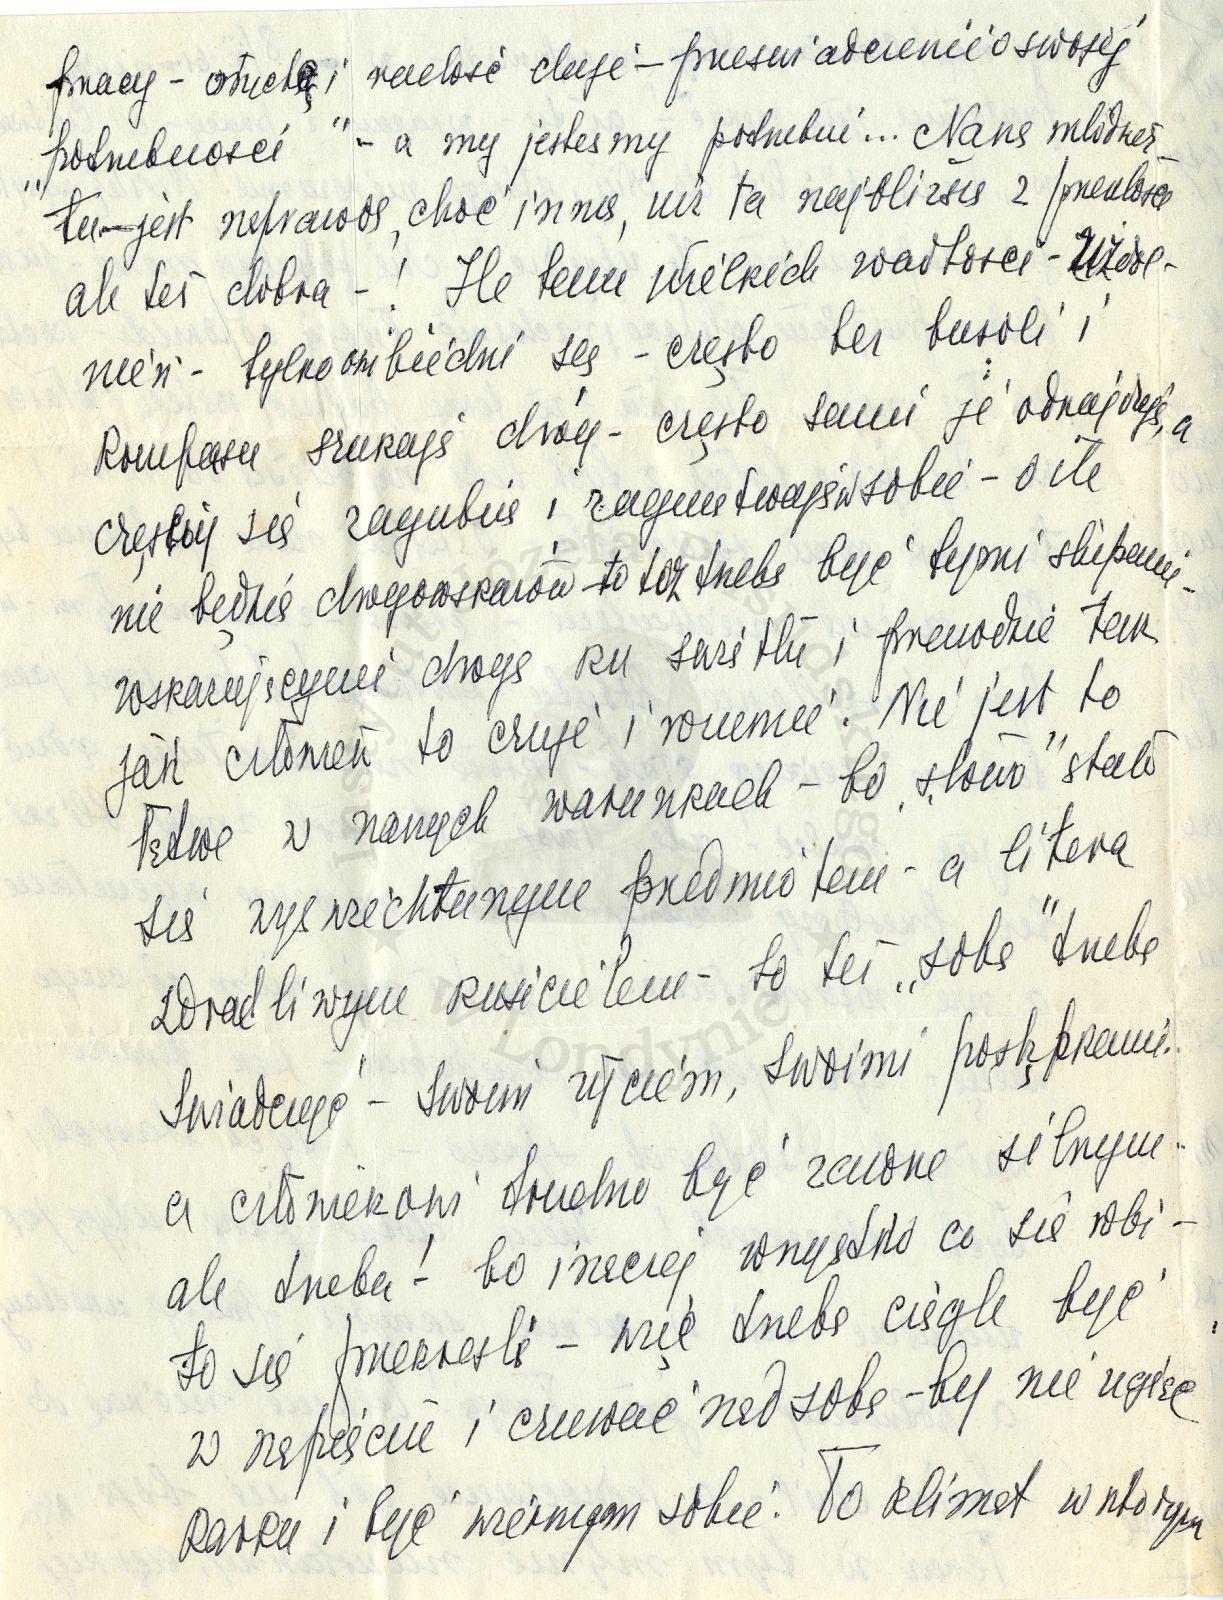 pracy - otuchę i radość daje - przeświadczenie o swojej
„potrzebności" - a my jesteśmy potrzebni... Nasza młodzież
tu - jest naprawdę, choć inna, niż ta najbliższa z przeszłości
ale też dobra - ! Ile tam wielkich wartości - uzdol-
nień - tylko oni biedni są - często bez busoli i
kompasu szukają dróg - często sami je odnajdują, a
częściej się zagubią i zagmatwają w sobie - o ile
nie będzie drogowskazów - to też trzeba być tymi słupami -
wskazującymi drogę ku światłu i prawodzie tak
jak człowiek to czuje i rozumie. Nie jest to
łatwe w naszych warunkach - bo „słowo" stało
się wyświechtanym przedmiotem - a litera
zdradliwym kusicielem - to też „sobą" trzeba
świadczyć - swoim życiem, swoimi postępkami.
a człowiekowi trudno być zawsze silnym -
ale trzeba! - bo inaczej wszystko co się robi -
to się przekreśla - więc trzeba ciągle być
w napięciu i czuwać nad sobą - by nie ugiąć
karku i być wiernym sobie. To klimat w którym
Instytut Józefa Piłsudskiego
w Londynie